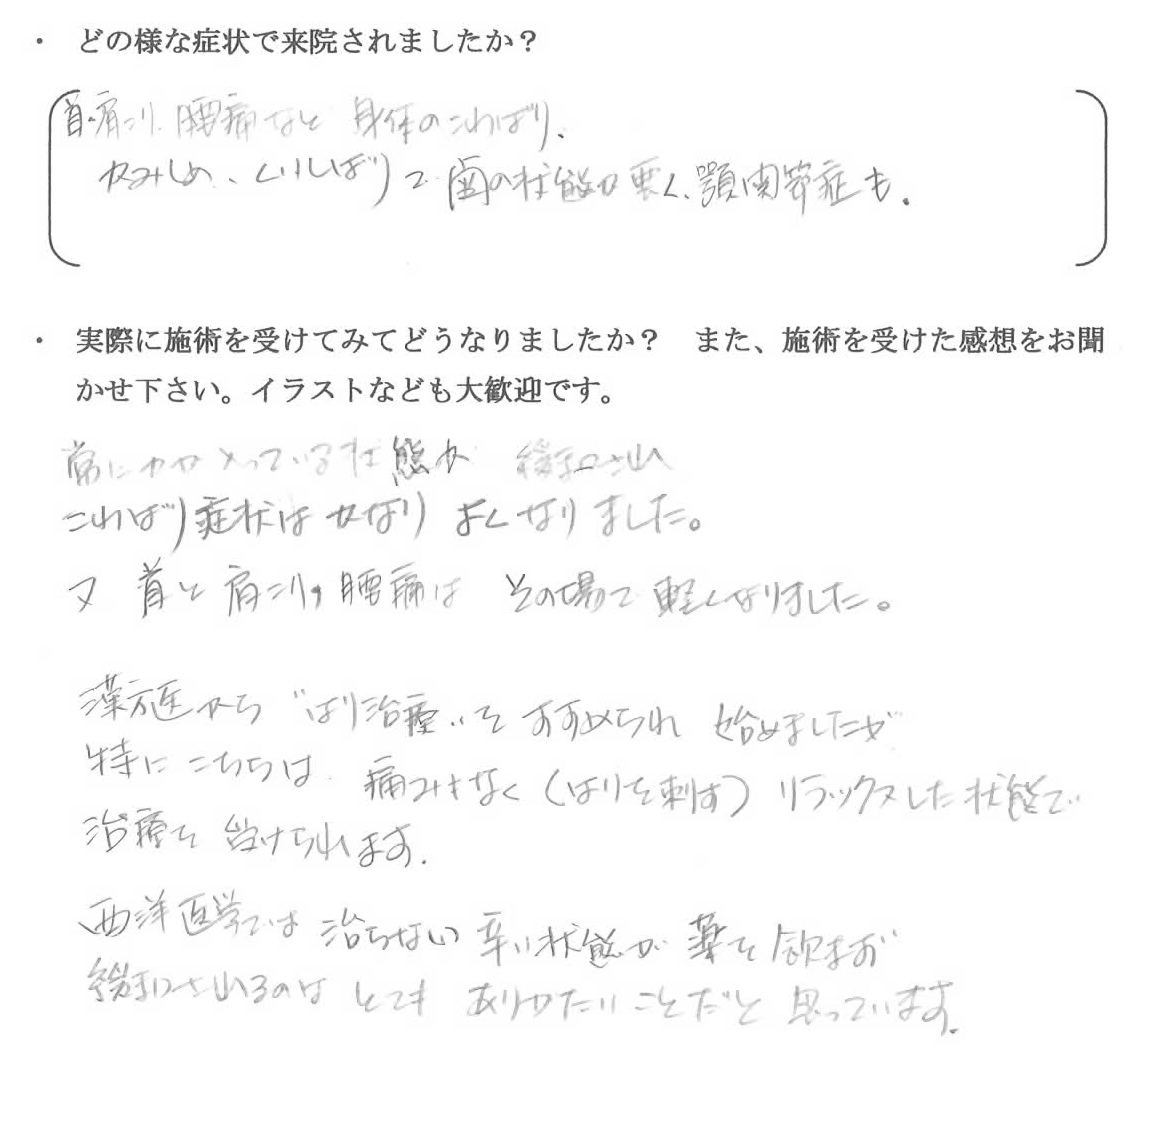 ・ どの様な症状で来院されましたか？
首・肩こり、腰痛など 身体のこわばり、
かみしめ、くいしばりで歯の状態が悪く、顎関節症も。
・ 実際に施術を受けてみてどうなりましたか？ また、施術を受けた感想をお聞
かせ下さい。イラストなども大歓迎です。
常に力が入っている状態が 緩和され
こわばり症状はかなり よくなりました。
又 首と肩こり、腰痛は その場で軽くなりました。
漢方医から"はり治療"を すすめられ 始めましたが
特に こちらは 痛みもなく（はりを刺す）リラックスした状態で
治療を 受けられます。
西洋医学では 治らない 辛い状態が 薬を飲まず
緩和されるのは とても ありがたいことだと 思っています。